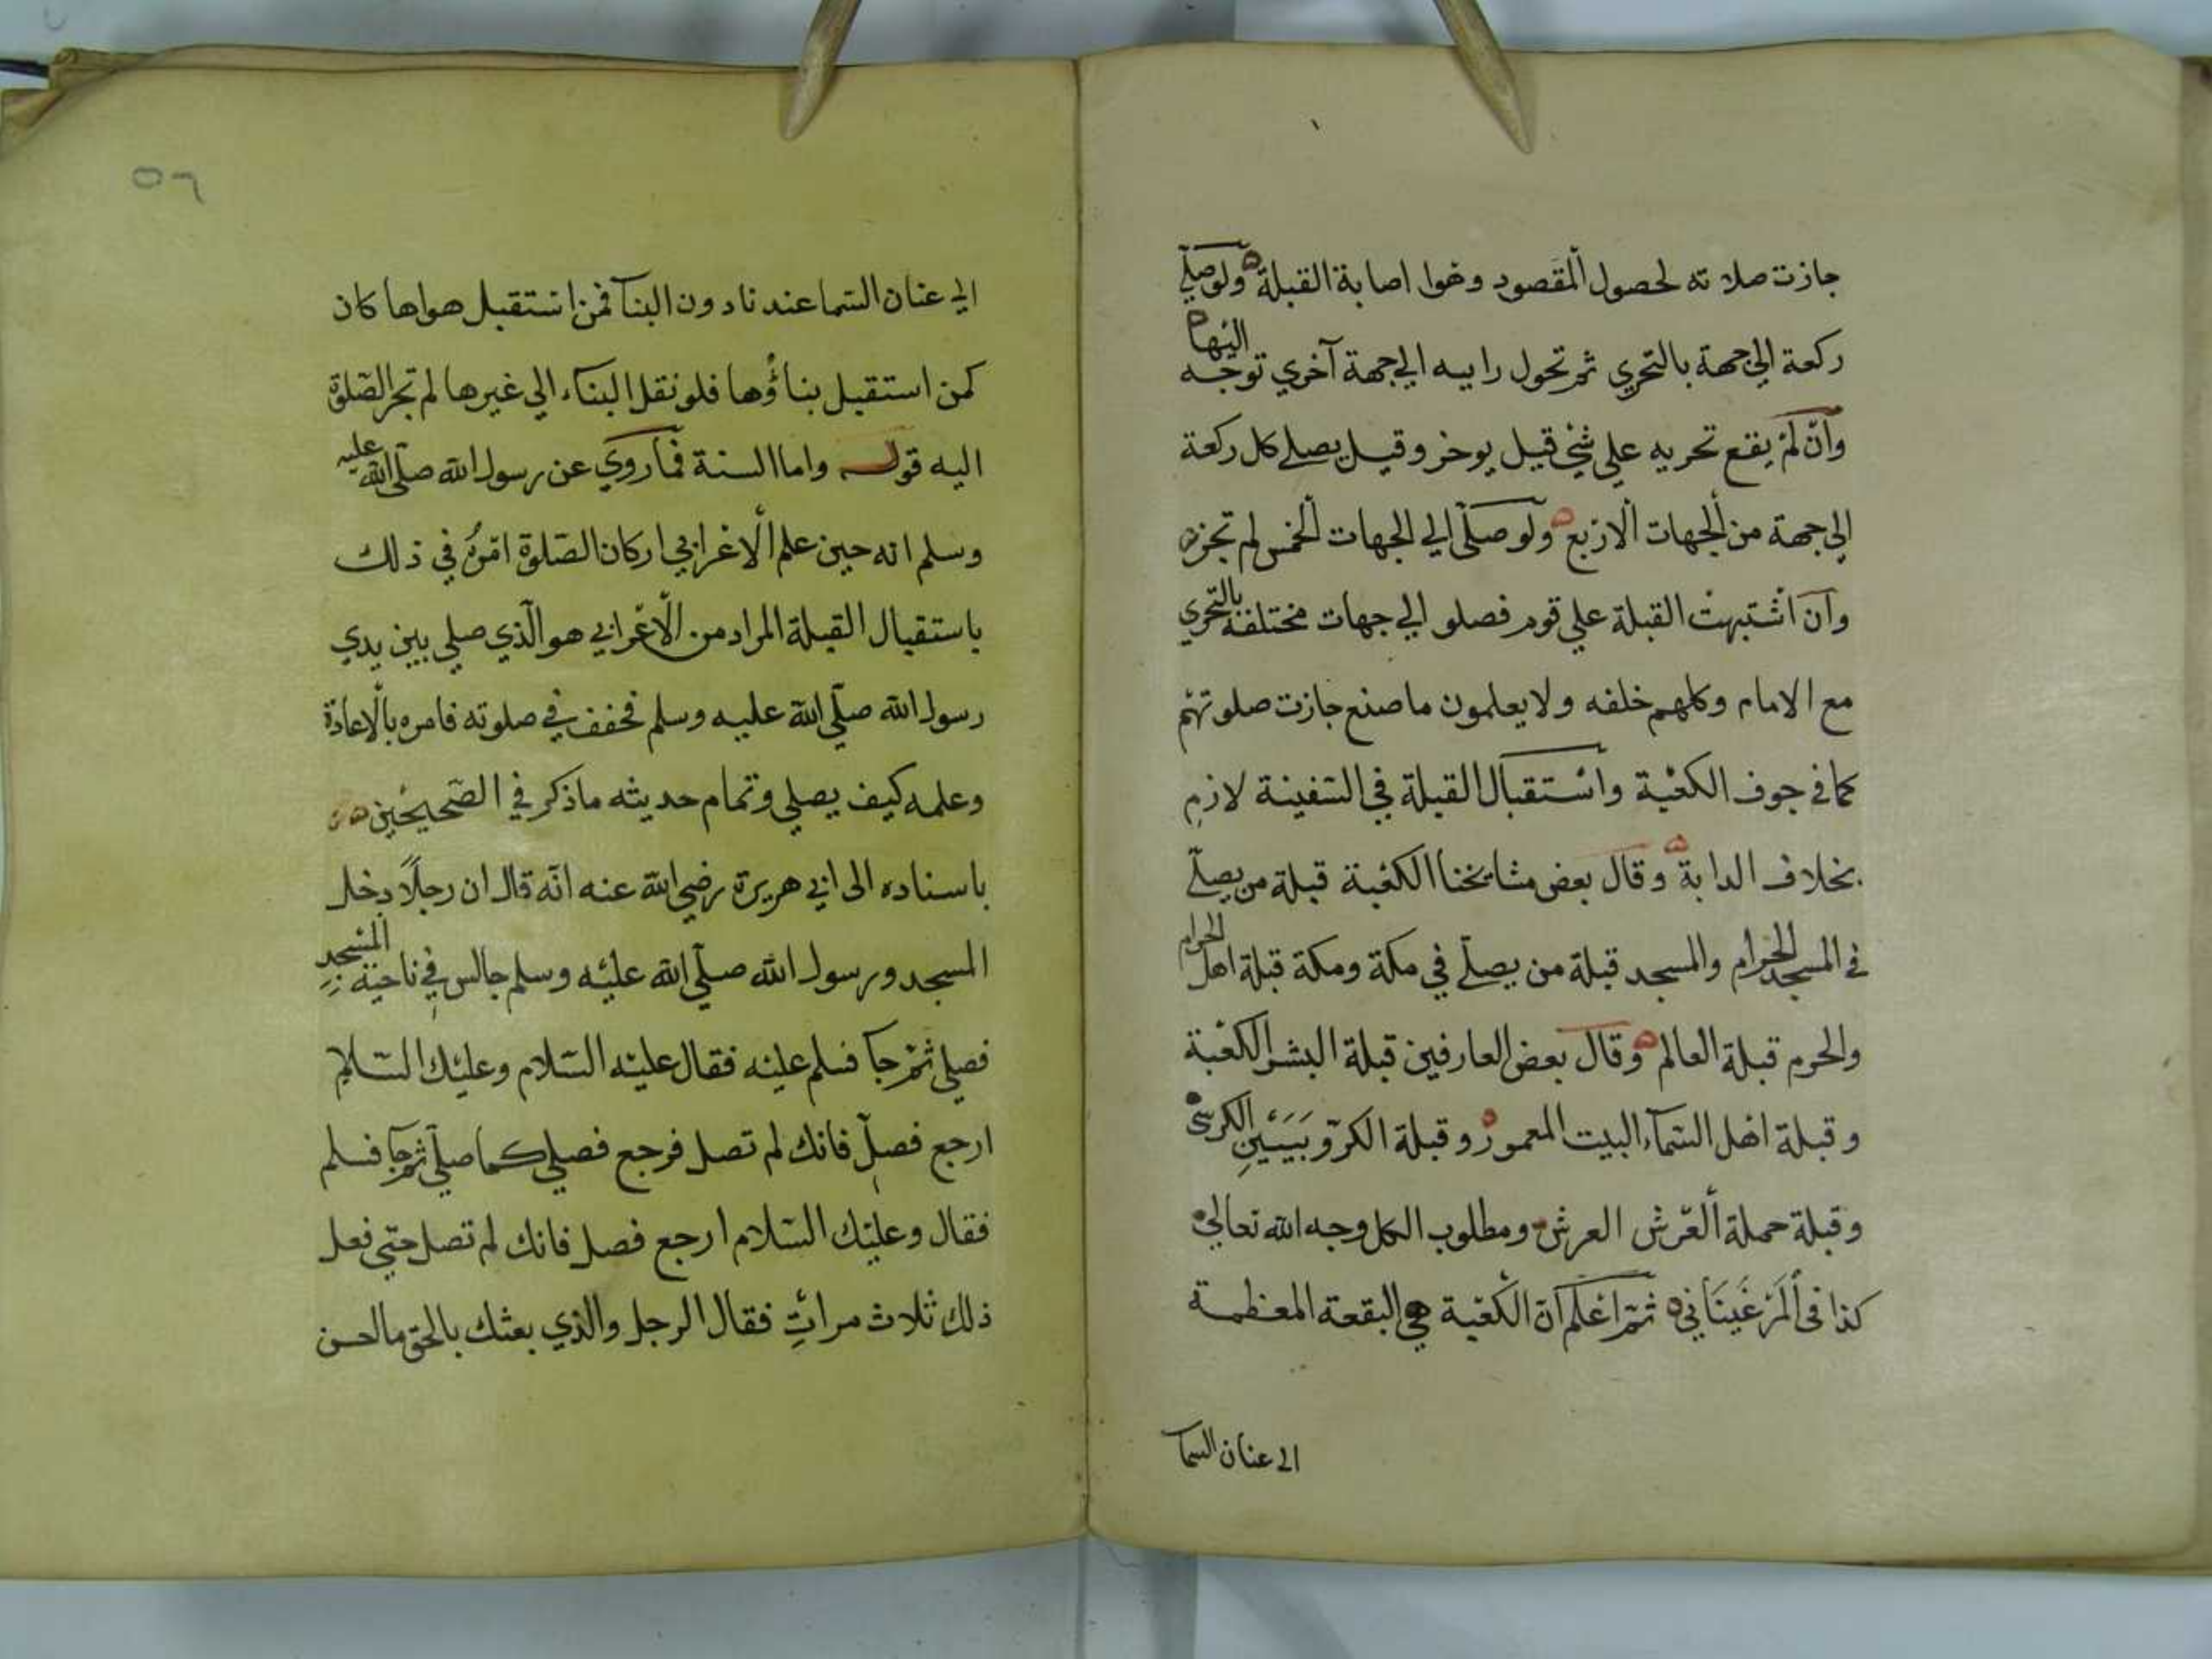 جازت صلا ته لحصول المقصود وهوا اصابة القبلة ولو صلي
ركعة الي جهة بالتحري ثم تحول راييه الي جهة آخري توجه اليها
وان لم يقع تحريه علي شئ قيل يوخر وقيل يصلے كل ركعة
الي جهة من الجهات الاربع ولو صلي الي الجهات الخمس لم تجزه
وان اشتبهت القبلة علي قوم فصلو الي جهات مختلفة بالتحري
مع الامام وكلهم خلفه ولا يعلمون ما صنع جازت صلوتهم
كما في جوف الكعبة واستقبال القبلة في السفينة لازم
بخلاف الدابة وقال بعض مشايخنا الكعبة قبلة من يصلي
في المسجد الحرام والمسجد قبلة من يصلي في مكة ومكة قبلة اهل الحرام
والحرم قبلة العالم وقال بعض العارفين قبلة البشر الكعبة
وقبلة اهل السماء البيت المعمور وقبلة الكروبيين الكرسي
وقبلة حملة العرش العرش ومطلوب الكل وجه الله تعالي
كذا في المرغيناني ثم اعلم ان الكعبة هي البقعة المعظمة
الي عنان السما
٥٦
الي عنان السما عندنا دون البنا فمن استقبل هواها كان
كمن استقبل بناؤها فلو نقل البناء الي غيرها لم تجز الصلوة
اليه قوله واما السنة فما روي عن رسول الله صلي الله عليه
وسلم انه حين علم الاعرابي اركان الصلوة امره في ذلك
باستقبال القبلة المراد من الاعرابي هو الذي صلي بين يدي
رسول الله صلي الله عليه وسلم فخفف في صلوته فامره بالاعادة
وعلمه كيف يصلي وتمام حديثه ما ذكر في الصحيحين
باسناده الى ابي هريرة رضي الله عنه انه قال ان رجلا دخل
المسجد ورسول الله صلي الله عليه وسلم جالس في ناحية المسجد
فصلي ثم جا فسلم عليه فقال عليه السلام وعليك السلام
ارجع فصل فانك لم تصل فرجع فصلي كما صلي ثم جا فسلم
فقال وعليك السلام ارجع فصل فانك لم تصل حتي فعل
ذلك ثلاث مرات فقال الرجل والذي بعثك بالحق ما احسن